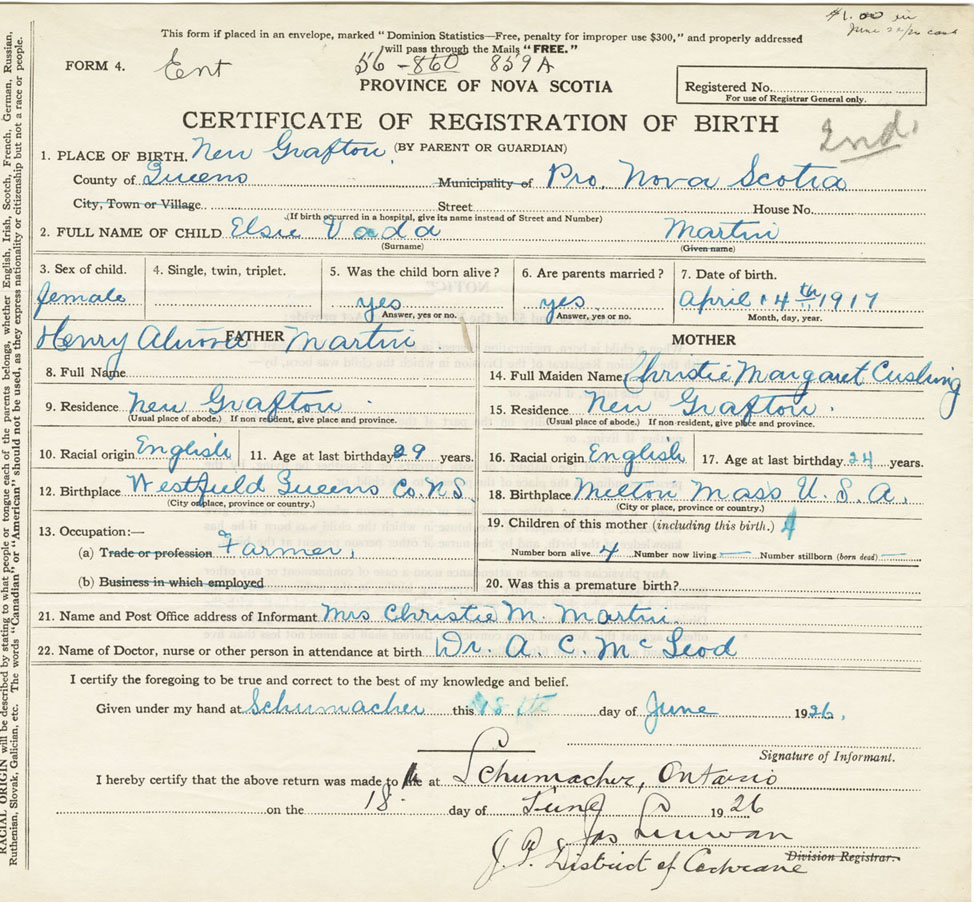 $1.00 in
This form if placed in an envelope, marked "Dominion Statistics—Free, penalty for improper use $300," and properly addressed
will pass through the Mails "FREE."
FORM 4. Ent 56-860 859A
PROVINCE OF NOVA SCOTIA
Registered No.
For use of Registrar General only.
CERTIFICATE OF REGISTRATION OF BIRTH
2nd.
1. PLACE OF BIRTH. New Grafton. (BY PARENT OR GUARDIAN)
County of Queens Municipality of Pro. Nova Scotia
City, Town or Village. Street House No.
(If birth occurred in a hospital, give its name instead of Street and Number)
2. FULL NAME OF CHILD Elsie Vada Martin
(Surname) (Given name)
3. Sex of child. 4. Single, twin, triplet. 5. Was the child born alive? 6. Are parents married? 7. Date of birth.
female yes yes April 14th 1917
Answer, yes or no. Answer, yes or no. Month, day, year.
FATHER
Henry Martin
8. Full Name
9. Residence New Grafton
(Usual place of abode.) If non-resident, give place and province.
10. Racial origin English 11. Age at last birthday 29 years.
12. Birthplace Westfield Queens Co. N.S.
(City or place, province or country.)
13. Occupation:—
(a) Trade or profession Farmer,
(b) Business in which employed
MOTHER
14. Full Maiden Name Christie Margaret Cushing
15. Residence New Grafton.
(Usual place of abode.) If non-resident, give place and province.
16. Racial origin English 17. Age at last birthday 24 years.
18. Birthplace Milton Mass U.S.A.
(City or place, province or country.)
19. Children of this mother (including this birth.) 4
Number born alive 4 Number now living — Number stillborn (born dead) —
20. Was this a premature birth?
21. Name and Post Office address of Informant Mrs Christie M. Martin.
22. Name of Doctor, nurse or other person in attendance at birth Dr. A. C. McLeod
I certify the foregoing to be true and correct to the best of my knowledge and belief.
Given under my hand at Schumacher this day of June 1926.
Signature of Informant.
I hereby certify that the above return was made to me at Schumacher, Ontario
on the 18 day of June 1926
Jas
Division Registrar.
J.P. District of Cochrane
RACIAL ORIGIN will be described by stating to what people or tongue each of the parents belongs, whether English, Irish, Scotch, French, German, Russian,
Ruthenian, Slovak, Galician, etc. The words "Canadian" or "American" should not be used, as they express nationality or citizenship but not a race or people.